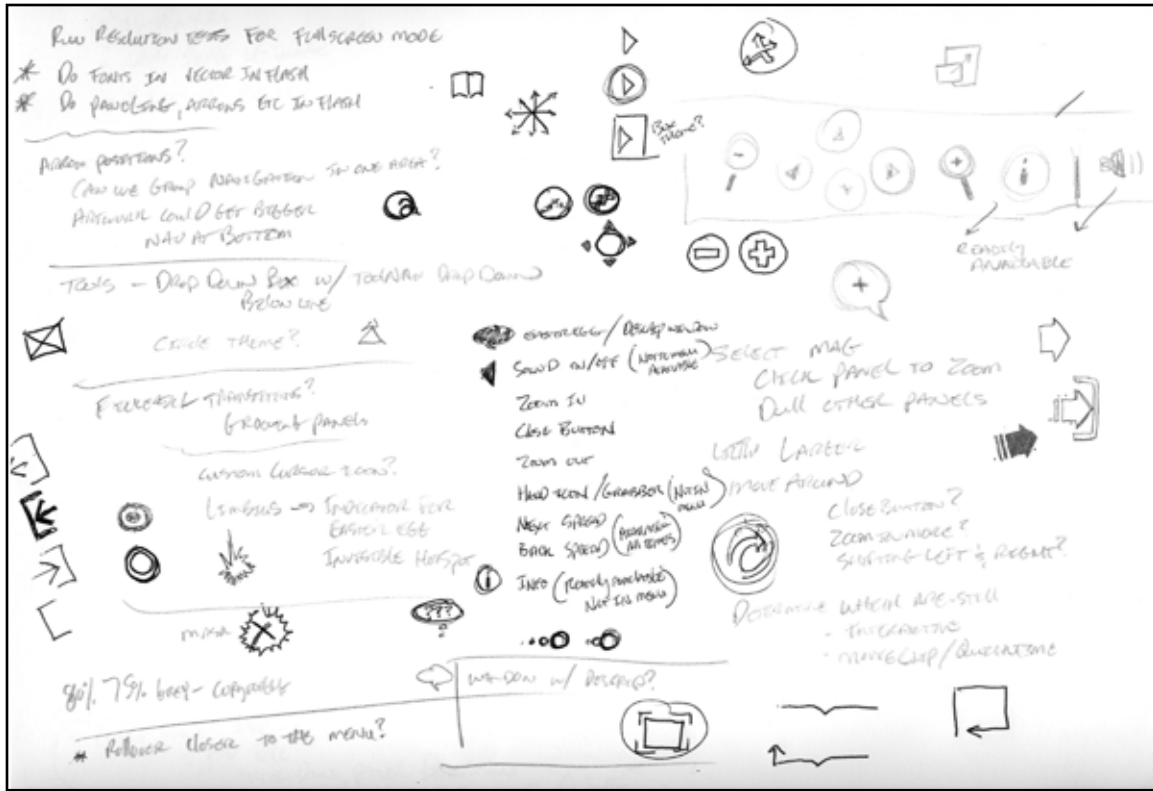 RUN RESOLUTION TESTS FOR FULLSCREEN MODE
* DO FONTS IN VECTOR IN FLASH
* DO PANELING, ARROWS ETC IN FLASH
ARROW POSITIONS?
CAN WE GROUP NAVIGATION IN ONE AREA?
ARTWORK COULD GET BIGGER
NAV AT BOTTOM
TOOLS - DROP DOWN BOX W/ TOOLNAV DROP DOWN
BELOW LINE
CIRCLE THEME?
TRANSITIONS?
PANELS
CUSTOM CURSOR ICON?
LIMBUS -> INDICATOR FOR
EASTER EGG
INVISIBLE HOTSPOT
80% 75% GREY -
* ROLLOVER CLOSER TO THE MENU?
BOX
THEME?
i
READILY
AVAILABLE
EASTER EGG / DESCRIP WINDOW
SOUND ON/OFF (NOT IN MENU
AVAILABLE)
ZOOM IN
CLOSE BUTTON
ZOOM OUT
HAND ICON / GRABBER (NOT IN
MENU)
NEXT SPREAD
BACK SPREAD
(AVAILABLE
AT ALL TIMES)
i INFO (READILY AVAILABLE
NOT IN MENU)
???
WINDOW W/ DESCRIP?
SELECT MAG
CLICK PANEL TO ZOOM
DULL OTHER PANELS
LARGER
MOVE AROUND
CLOSE BUTTON?
ZOOM IN MORE?
SHIFTING LEFT & RIGHT?
DETERMINE WHICH ARE - STILL
- INTERACTIVE
- MOVIECLIP / QUICKTIME